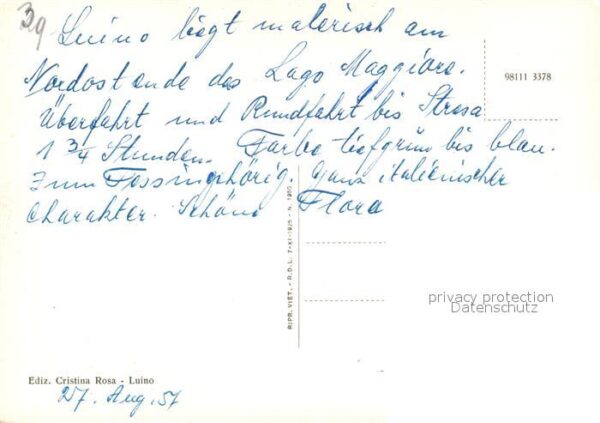 39
Luino liegt malerisch am
Nordostende des Lago Maggiore.
Überfahrt und Rundfahrt bis Stresa
1 3/4 Stunden. Farbe tiefgrün bis blau.
Zum gehörig. Ganz italienischer
Charakter. Schöne Flora
98111 3378
RIPR. VIET. - R.D.L. 7-XI-1925 - N. 1950
privacy protection
Datenschutz
Ediz. Cristina Rosa - Luino
27. Aug. 57